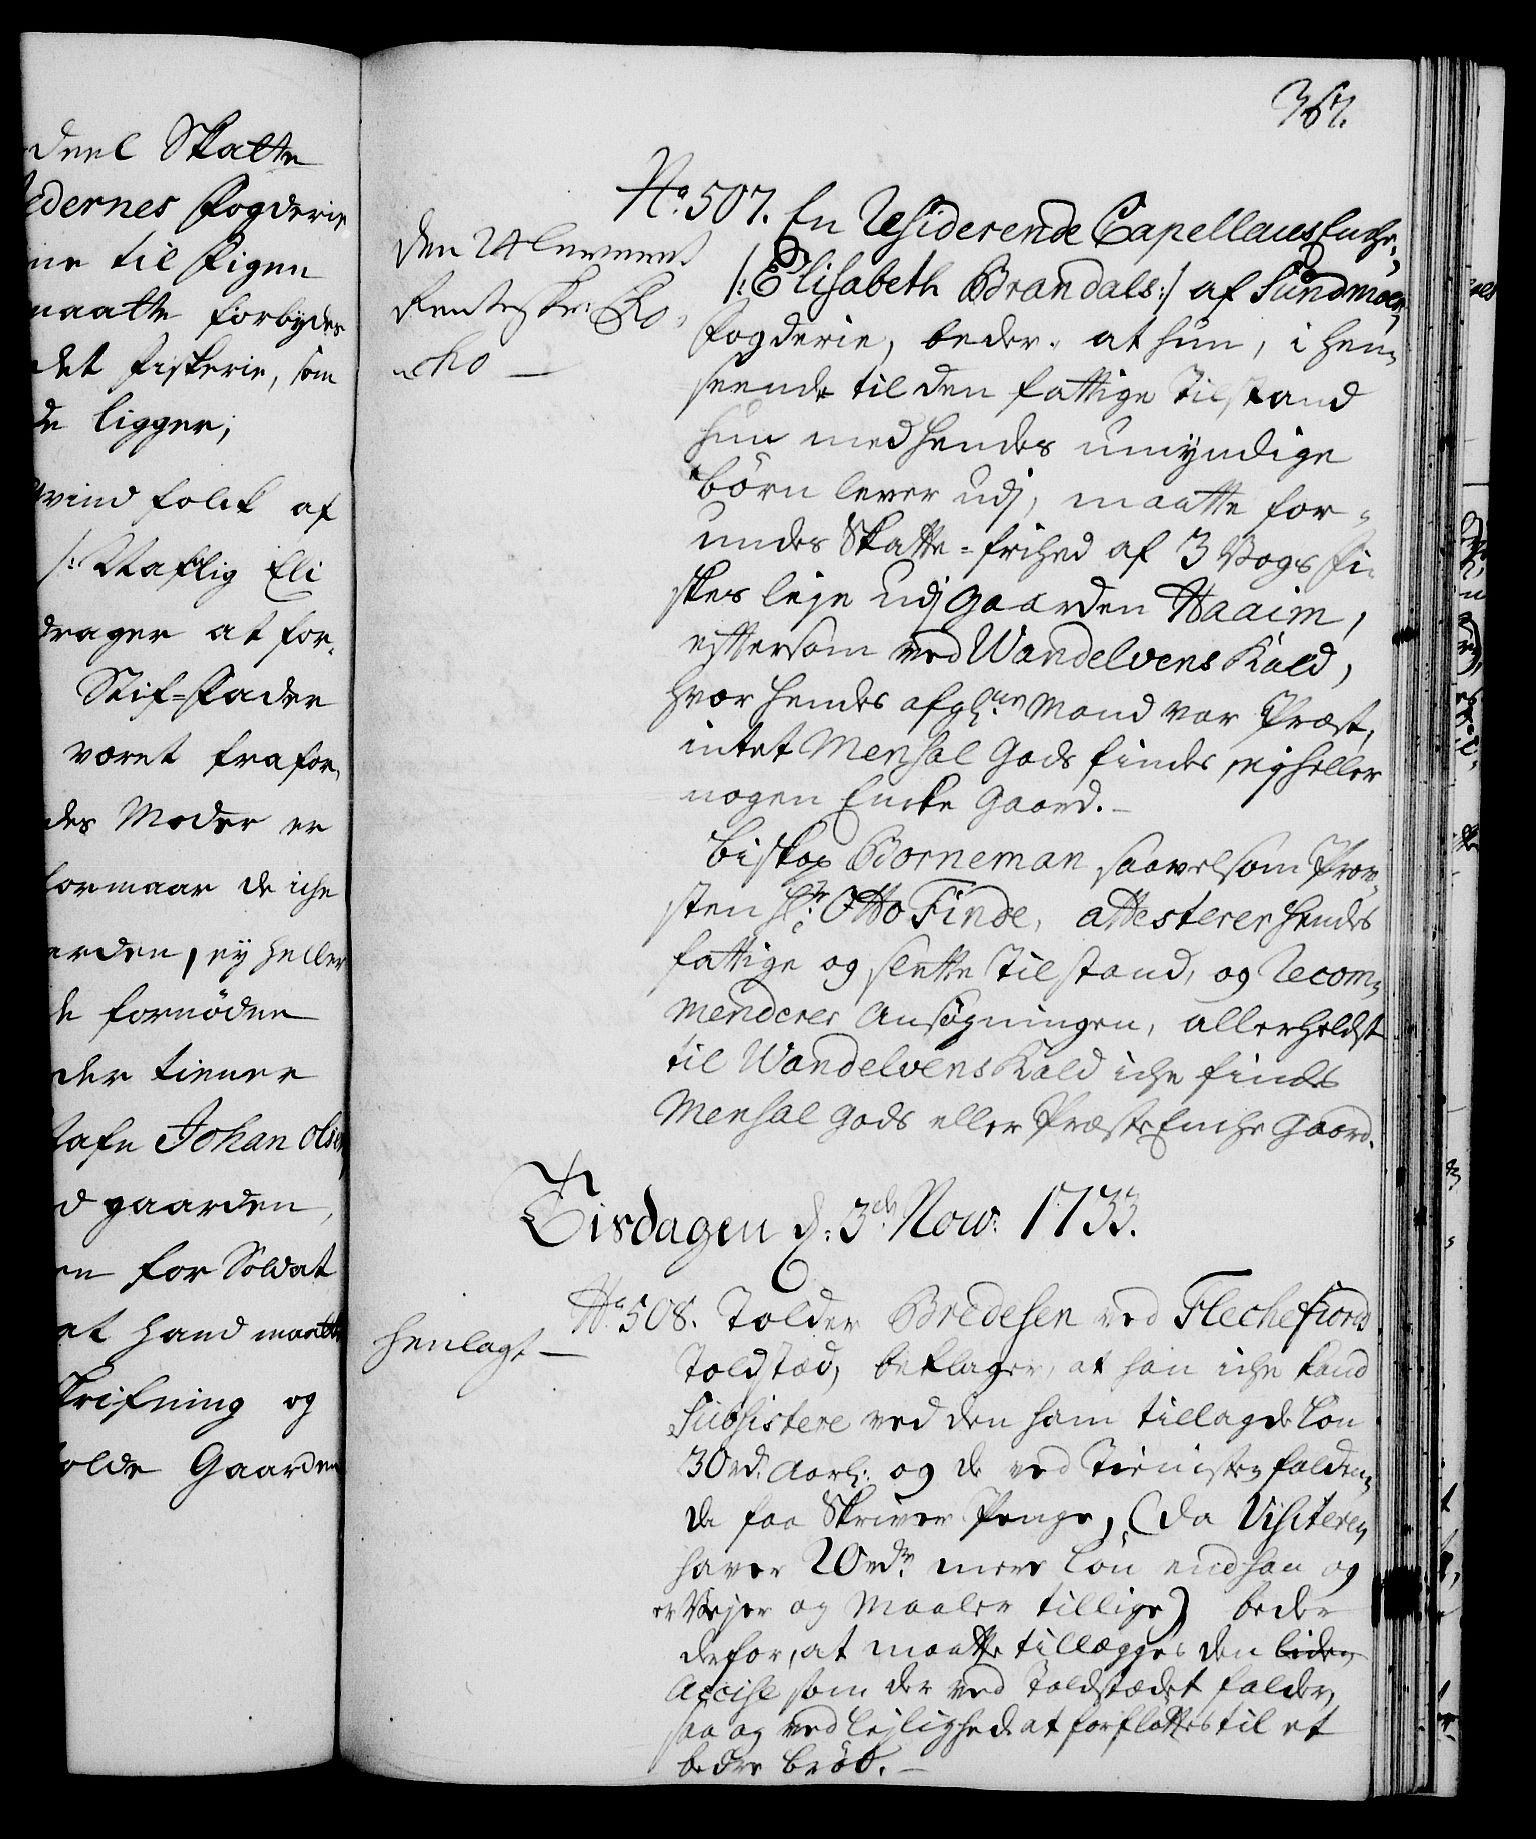 deel Skatte
edernes Fogderie
ne til Figen
maatte forbydes
det Fiskerie, som
de ligger;
qvind folck af
/: Eli
drager at for-
Stif-Fader
været frafor,
des Moder er
formaar de iche
erden, ey heller
de fornöden
der tiener
Johan Olsen
d gaarden,
en for Soldat
at hand maatte
skrifning og
olde Gaarden
367.
No. 507. En Residerende Capellans Enche,
/: Elisabeth Brandals :/ af Sundmoers
Fogderie, beder, at hun, i hen-
seende til den fattige Tilstand
hun med hendes umyndige
börn lever udj, maatte for-
undes Skatte-frihed af 3 Vogs Fi-
skes leje udj Gaarden Haaim,
eftersom ved Wandelvens Kald,
hvor hendes afgl. Mand var Præst,
intet Mensal Gods findes, ejheller
nogen Encke Gaard.-
Biskop Borneman saavelsom Prov-
sten Hr. Otto Finde, attesterer hendes
fattige og slette Tilstand, og Recom-
menderer Ansøgningen, allerheldst
til Wandelvens Kald iche findes
Mensal Gods eller Præste Enche Gaard.
den 24 leveret
Renteskr: Ko-
cho —
Tisdagen d. 3de Nov: 1733.
No. 508. Tolder Bredesen ved Flechefiords
Toldsted, beklager, at han iche kand
Subsistere ved den ham tillagde Lön
30 rd. Aarl: og de ved Tienisten falden-
de faa Skriver Penge, (da Visiteren
haver 20 rdr. mere Lön end han og
er Vejer og Maaler tillige) beder
derfor, at maatte tillægges den liden
Accise som der ved Toldstædet falder,
saa og ved lejlighed at forflöttes til et
bedre bröd. —
henlagt —